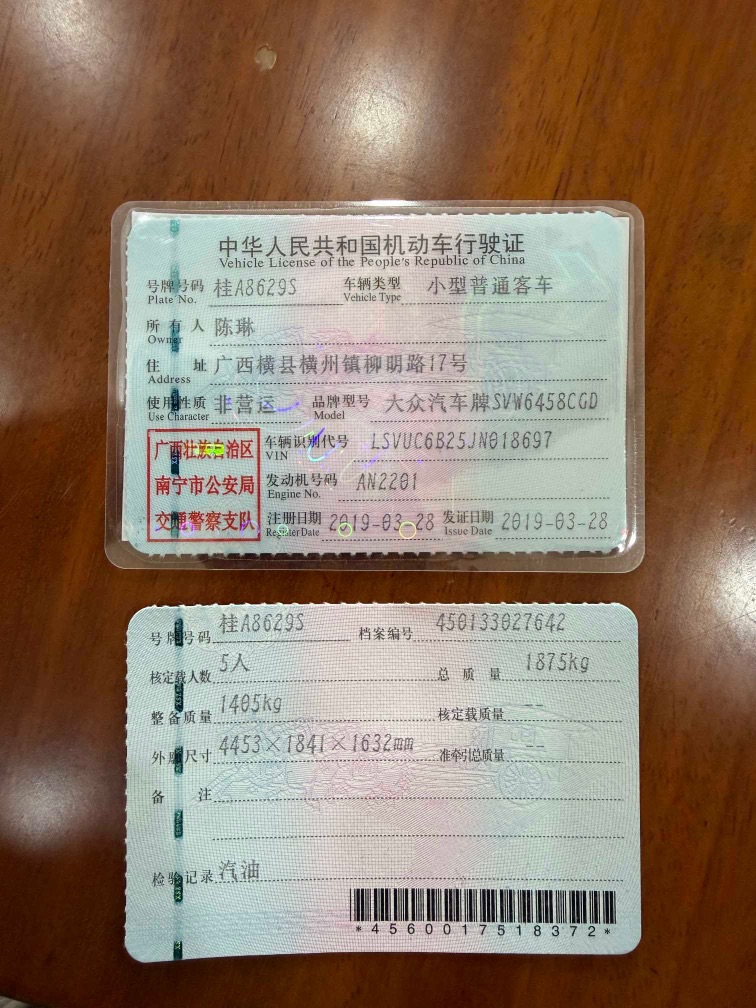 中华人民共和国机动车行驶证
Vehicle License of the People's Republic of China
号牌号码 桂A8629S 车辆类型 小型普通客车
Plate No. Vehicle Type
所有人 陈琳
Owner
住址 广西横县横州镇柳明路17号
Address
使用性质 非营运 品牌型号 大众汽车牌SVW6458CGD
Use Character Model
广西壮族自治区
南宁市公安局
交通警察支队
车辆识别代号 LSVUC6B25JN018697
VIN
发动机号码 AN2201
Engine No.
注册日期 2019-03-28 发证日期 2019-03-28
Register Date Issue Date
号牌号码 桂A8629S 档案编号 450133027642
核定载人数 5人 总质量 1875kg
整备质量 1405kg 核定载质量 --
外廓尺寸 4453×1841×1632mm 准牵引总质量 --
备注
检验记录 汽油
*4560017518372*